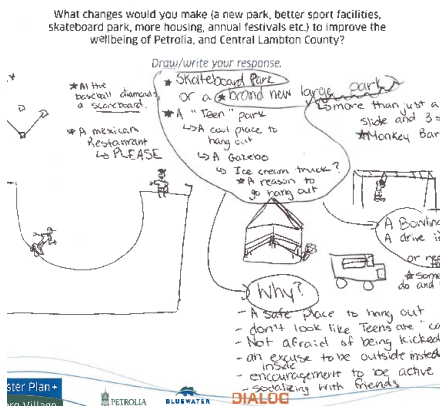 What changes would you make (a new park, better sport facilities,
skateboard park, more housing, annual festivals etc.) to improve the
wellbeing of Petrolia, and Central Lambton County?
Draw/write your response.
* Skateboard Park
or a * brand new large park
↳ more than just a
slide and 3
* Monkey Bar
* At the
baseball diamonds
a scoreboard.
* A mexican
Restaurant
↳ PLEASE
* A "Teen" park
↳ A cool place to
hang out
↳ A Gazebo
↳ Ice cream truck?
* A reason to
go hang out
A Bowling
A drive i
or
* some
do and
Why?
- A safe place to hang out
- don't look like Teens are "co
- Not afraid of being kicked
- an excuse to be outside insted
inside
- encouragement to be active
- socializing with friends
ster Plan+
ore Village
PETROLIA
BLUEWATER
DIALOG